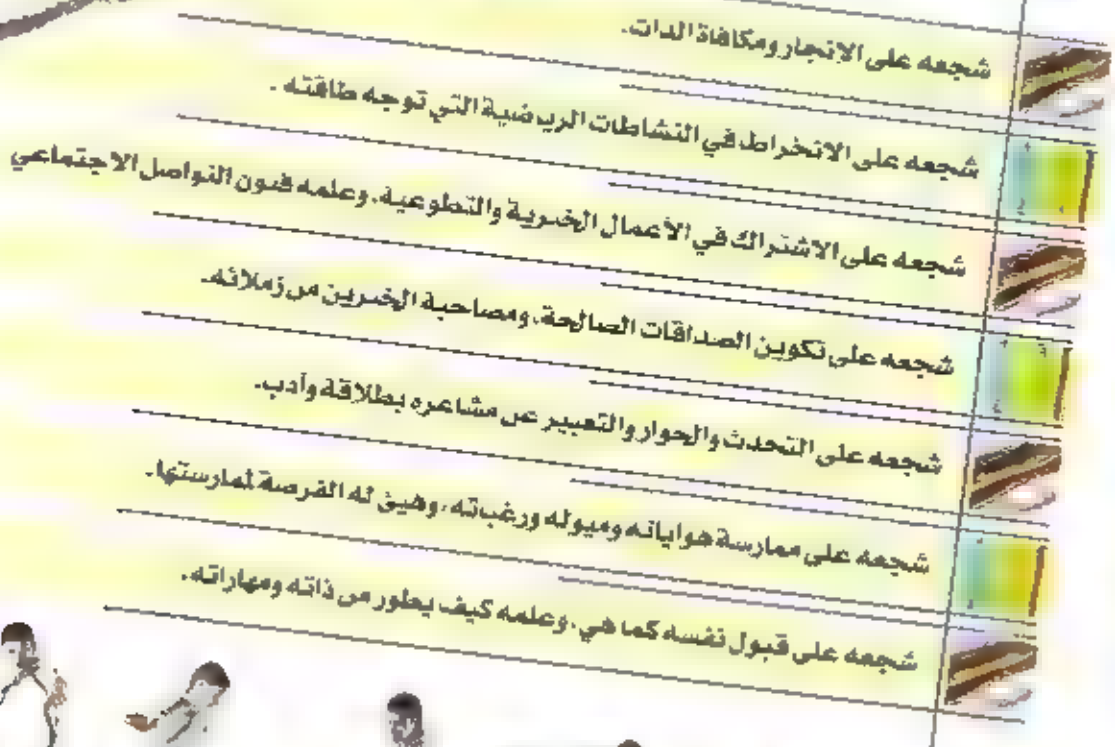 شجعه على الإنجاز ومكافأة الذات.
شجعه على الانخراط في النشاطات الرياضية التي توجه طاقته .
شجعه على الاشتراك في الأعمال الخيرية والتطوعية، وعلمه فنون التواصل الاجتماعي
شجعه على تكوين الصداقات الصالحة، ومصاحبة الخيرين من زملائه.
شجعه على التحدث والحوار والتعبير عن مشاعره بطلاقة وأدب.
شجعه على ممارسة هواياته وميوله ورغباته، وهيئ له الفرصة لممارستها.
شجعه على قبول نفسه كما هي، وعلمه كيف يطور من ذاته ومهاراته.